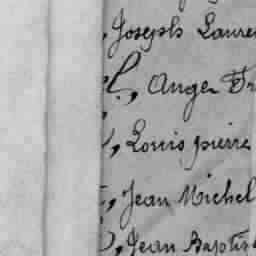 , Joseph Laure
l, Ange Fr
, Louis pierre
, Jean Michel
, Jean Baptis